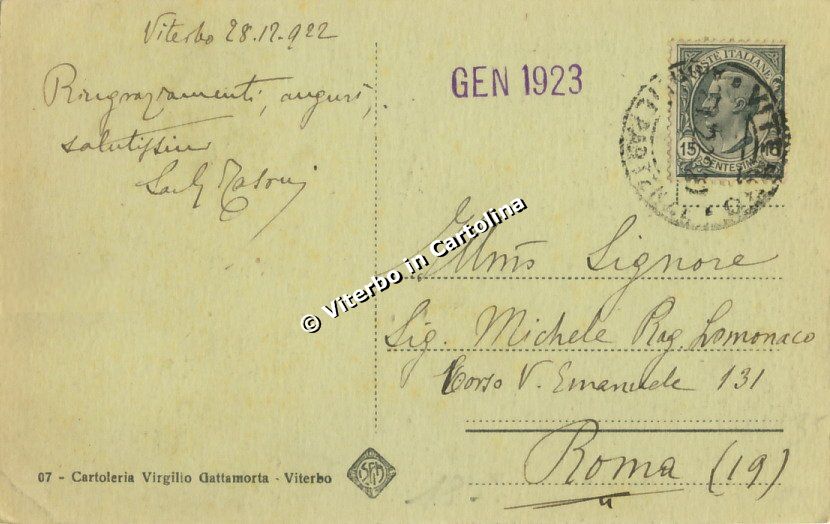 Viterbo 28.12.922
Ringraziamenti, auguri,
salutissimi
GEN 1923
POSTE ITALIANE
15 15
CENTESIMI
VITERBO
© Viterbo in Cartolina
Illmo Signore
Sig. Michele Rag. Lomonaco
Corso V. Emanuele 131
Roma (19)
07 - Cartoleria Virgilio Gattamorta - Viterbo